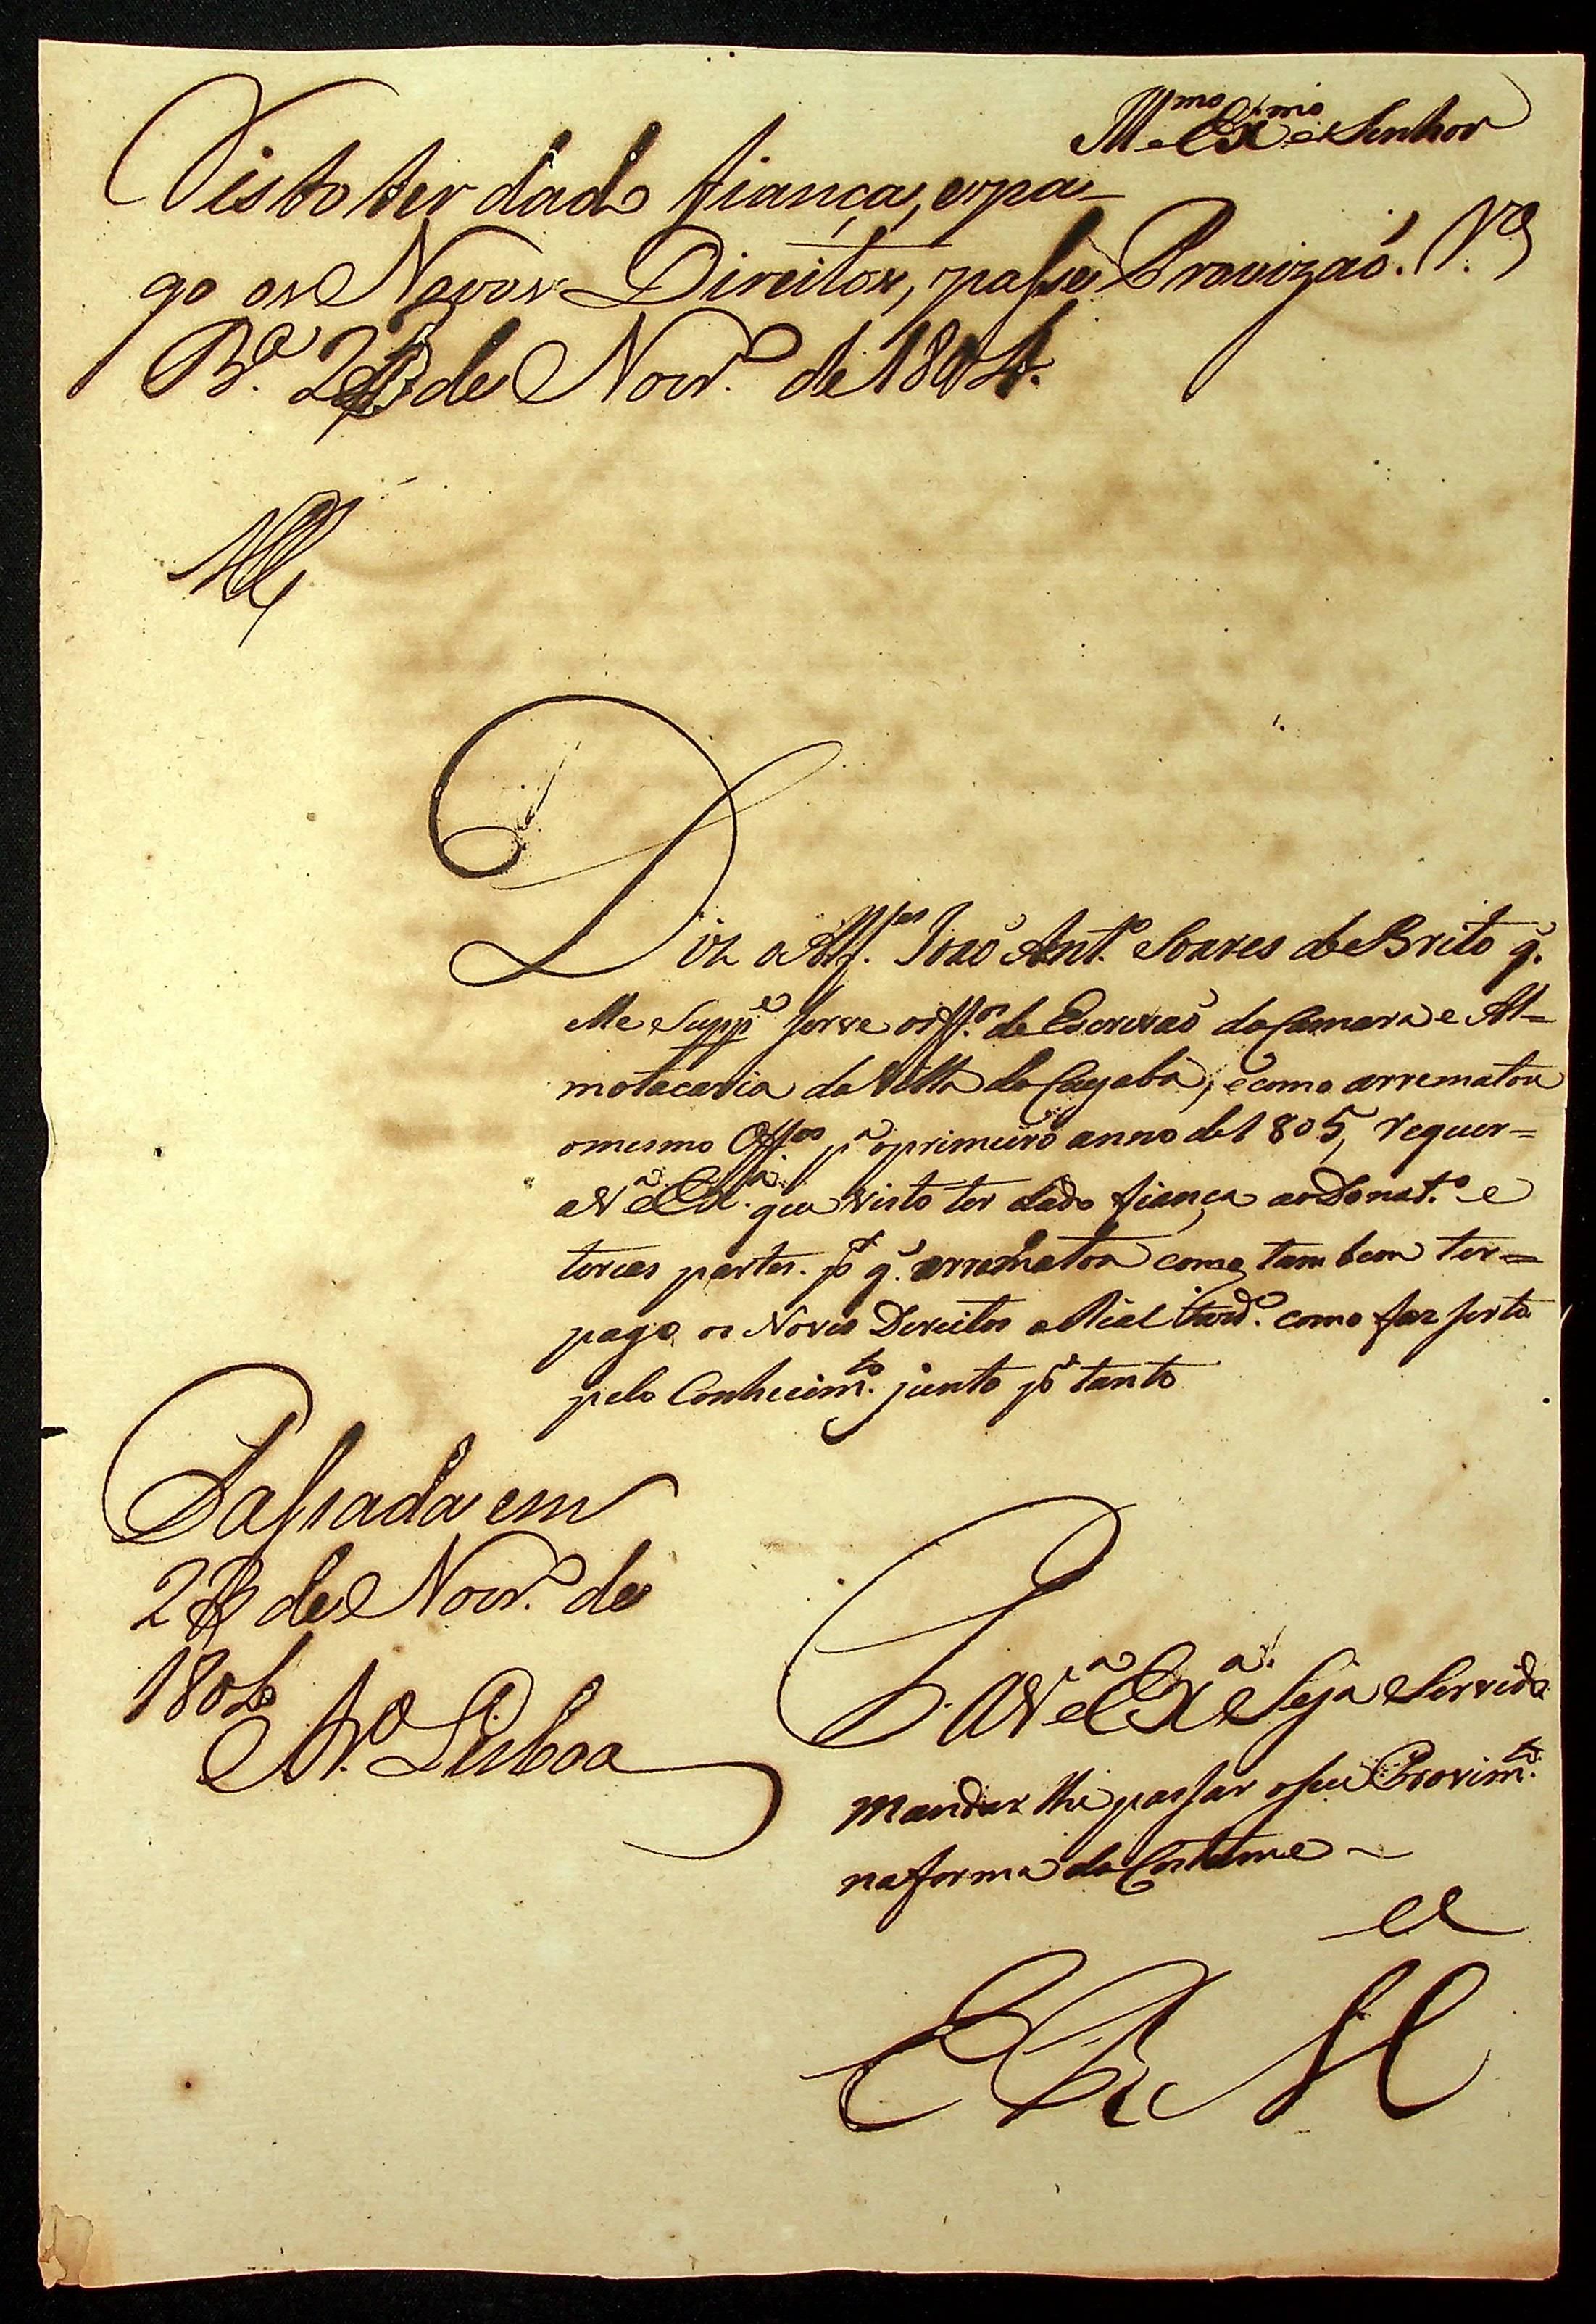 Illmo. e Exmo. Senhor
Visto ter dado fiança, e pa-
go os Novos Direitos, passe Provizaõ.
Ba. de Novro. de 1804.
Diz o Alfes. Joaõ Anto. Soares de Brito q.
elle Suppe. serve os Offos. de Escrivaõ da Camara e Al=
motacaria da Villa de, e como arrematou
o mesmo Offos. pa. o primeiro anno de 1805, requer=
a Va. Exa. que visto ter dado fiança ao Donato. e
terças partes. pr. q. arrematou como tambem ter=
pago os Novos Direitos a Rial como faz serto
pelo Conhecimto. junto pr. tanto
Passada em
de Novro. de
1804
Lisboa
P. a Va. Exa. Seja Servido
mandar lhe passar o seu Provimto.
na forma do Costume
E R Mce